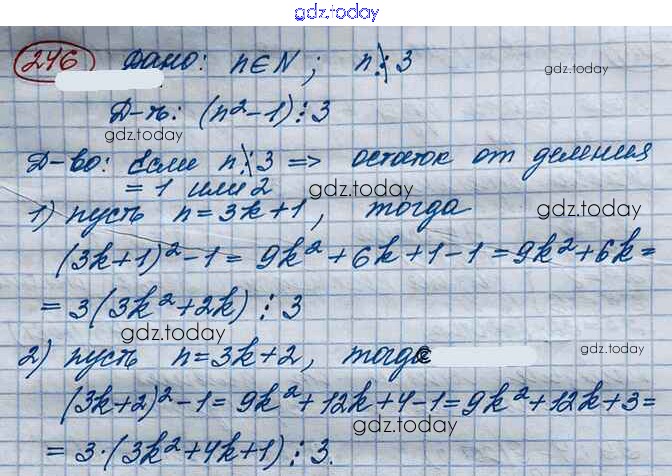 gdz.today
246 Дано: n∈N; n⋮̸3
gdz.today
gdz.today
Д-ть: (n²-1)⋮3
gdz.today
Д-во: Если n⋮̸3 => остаток от деления
= 1 или 2
gdz.today
1) пусть n=3k+1, тогда
gdz.today
(3k+1)²-1 = 9k²+6k+1-1=9k²+6k=
= 3(3k²+2k)⋮3
gdz.today
2) пусть n=3k+2, тогда
gdz.today
(3k+2)²-1=9k²+12k+4-1=9k²+12k+3=
gdz.today
= 3·(3k²+4k+1)⋮3.